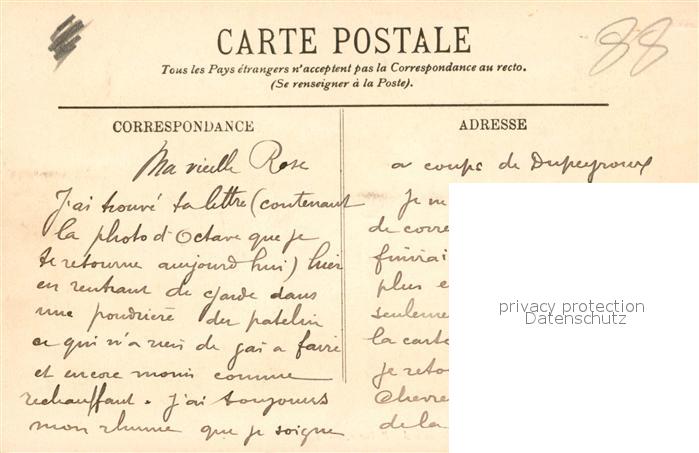 88
CARTE POSTALE
Tous les Pays étrangers n'acceptent pas la Correspondance au recto.
(Se renseigner à la Poste).
CORRESPONDANCE
Ma vieille Rose
J'ai trouvé ta lettre (contenant
la photo d'Octave que je
te retourne aujourd'hui) hier
en rentrant de garde dans
une poudrière du patelin
ce qui n'a rien de gai a faire
et encore moins comme
rechauffant. J'ai toujours
mon rhume que je soigne
ADRESSE
a coups de Dupeyroux
Je
de corre
finirai
plus
seuleme
la carte
je reto
Chevre
de la
privacy protection
Datenschutz